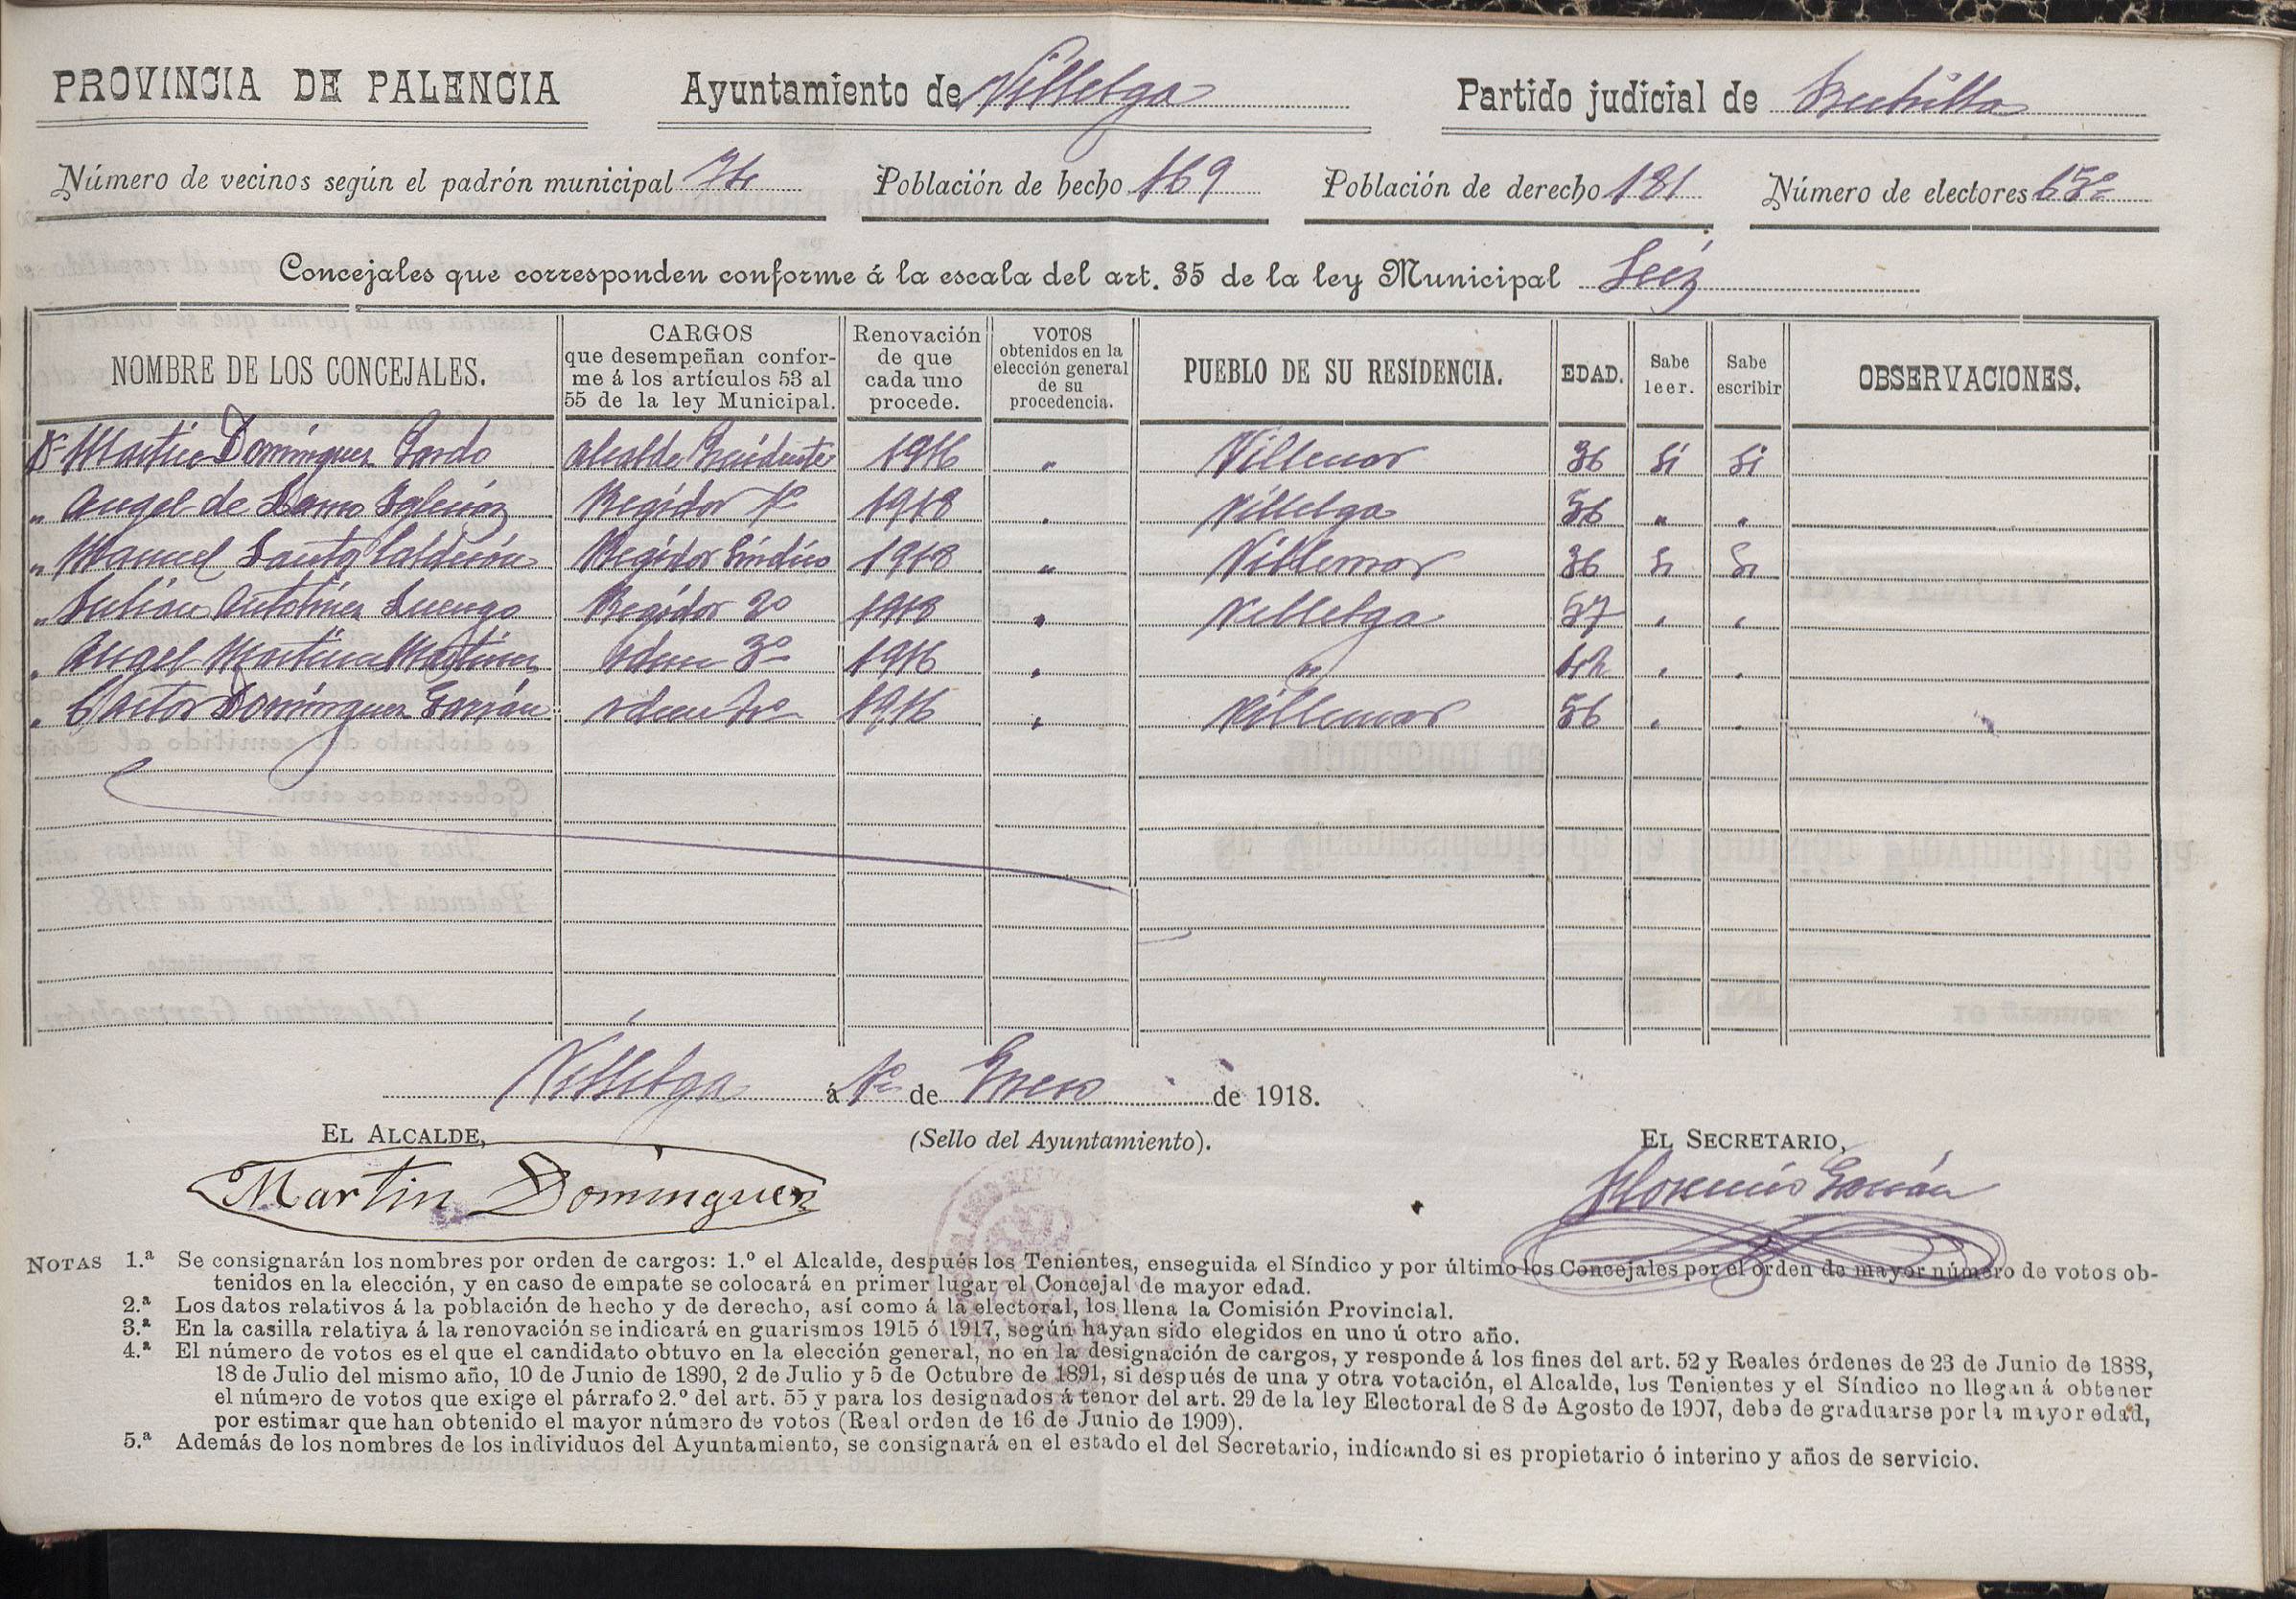 PROVINCIA DE PALENCIA Ayuntamiento de Villelga Partido judicial de Frechilla
Número de vecinos según el padrón municipal 74 Población de hecho 169 Población de derecho 181 Número de electores 65
Concejales que corresponden conforme á la escala del art. 35 de la ley Municipal Seis
NOMBRE DE LOS CONCEJALES. CARGOS que desempeñan conforme á los artículos 53 al 55 de la ley Municipal. Renovación de que cada uno procede. VOTOS obtenidos en la elección general de su procedencia. PUEBLO DE SU RESIDENCIA. EDAD. Sabe leer. Sabe escribir OBSERVACIONES.
Dn Martin Dominguez Pardo Alcalde Presidente 1916 " Villemar 36 Si Si
" Angel de Lamo Iglesias Regidor 1º 1918 " Villelga 56 " "
" Manuel Santos Calderón Regidor Sindico 1918 " Villemar 36 Si Si
" Julián Antolinez Luengo Regidor 2º 1918 " Villelga 57 " "
" Angel Martinez Martinez Idem 3º 1916 " " 42 " "
" Castor Dominguez Garrán Idem 4º 1916 " Villemar 56 " "
Villelga á 1º de Enero de 1918.
EL ALCALDE, (Sello del Ayuntamiento). EL SECRETARIO,
Martin Dominguez Florencio Garrán
NOTAS 1.ª Se consignarán los nombres por orden de cargos: 1.º el Alcalde, después los Tenientes, enseguida el Síndico y por último los Concejales por el orden de mayor número de votos ob-
tenidos en la elección, y en caso de empate se colocará en primer lugar el Concejal de mayor edad.
2.ª Los datos relativos á la población de hecho y de derecho, así como á la electoral, los llena la Comisión Provincial.
3.ª En la casilla relativa á la renovación se indicará en guarismos 1915 ó 1917, según hayan sido elegidos en uno ú otro año.
4.ª El número de votos es el que el candidato obtuvo en la elección general, no en la designación de cargos, y responde á los fines del art. 52 y Reales órdenes de 23 de Junio de 1888,
18 de Julio del mismo año, 10 de Junio de 1890, 2 de Julio y 5 de Octubre de 1891, si después de una y otra votación, el Alcalde, los Tenientes y el Síndico no llegan á obtener
el número de votos que exige el párrafo 2.º del art. 55 y para los designados á tenor del art. 29 de la ley Electoral de 8 de Agosto de 1907, debe de graduarse por la mayor edad,
por estimar que han obtenido el mayor número de votos (Real orden de 16 de Junio de 1909).
5.ª Además de los nombres de los individuos del Ayuntamiento, se consignará en el estado el del Secretario, indicando si es propietario ó interino y años de servicio.